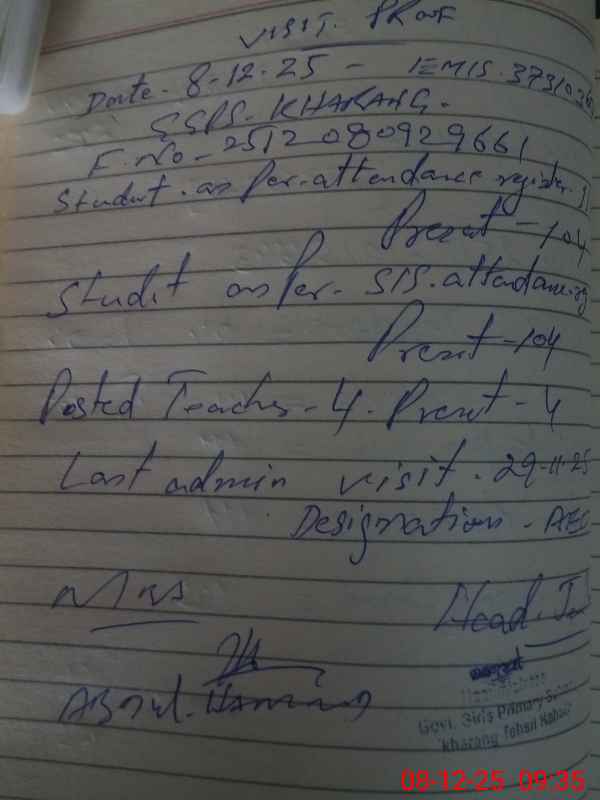 VISIT. PROOF
Date. 8-12-25 - IEMIS. 37310
GGPS. KHARANG.
F. No - 2512080929661
Student. as Per. attendance register.
Present - 104
Studit as Per. SIS. attendance.
Presnt - 104
Posted Teacher - 4. Present - 4
Last admin visit. 29-11-25
Designation - AEO
Head. T
Govt. Girls Primary
Kharang Tehsil
08-12-25 09:35